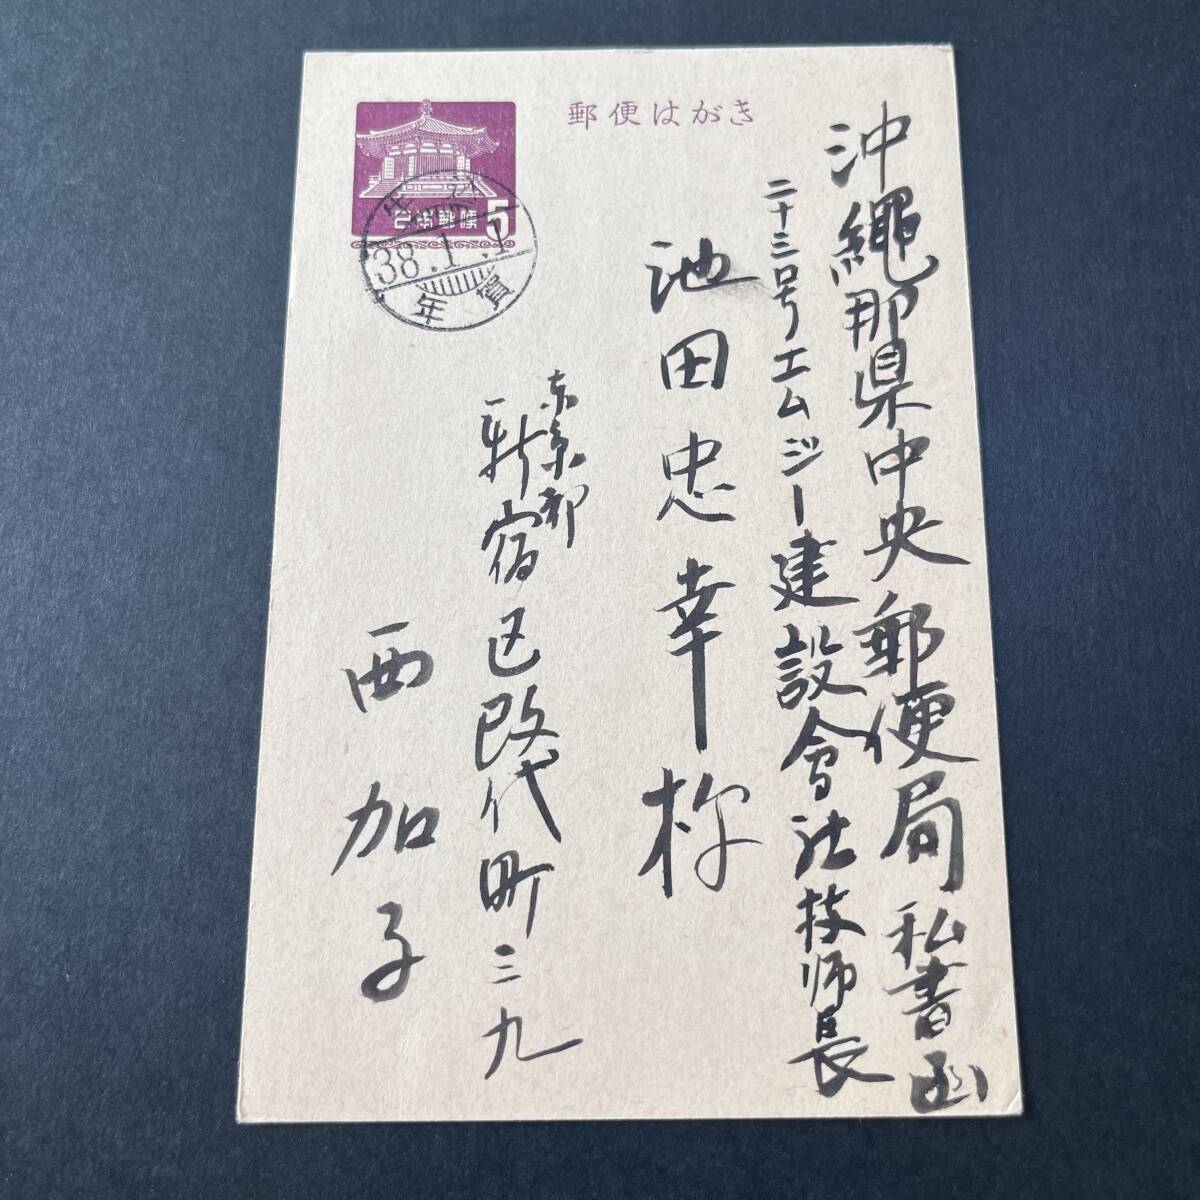 郵便はがき
沖繩那県中央郵便局私書函
二十三号エムジー建設會社技師長
池田忠幸
東京都
新宿区改代町三九
西加子
日本郵便
5
牛込
38.1.1
年賀